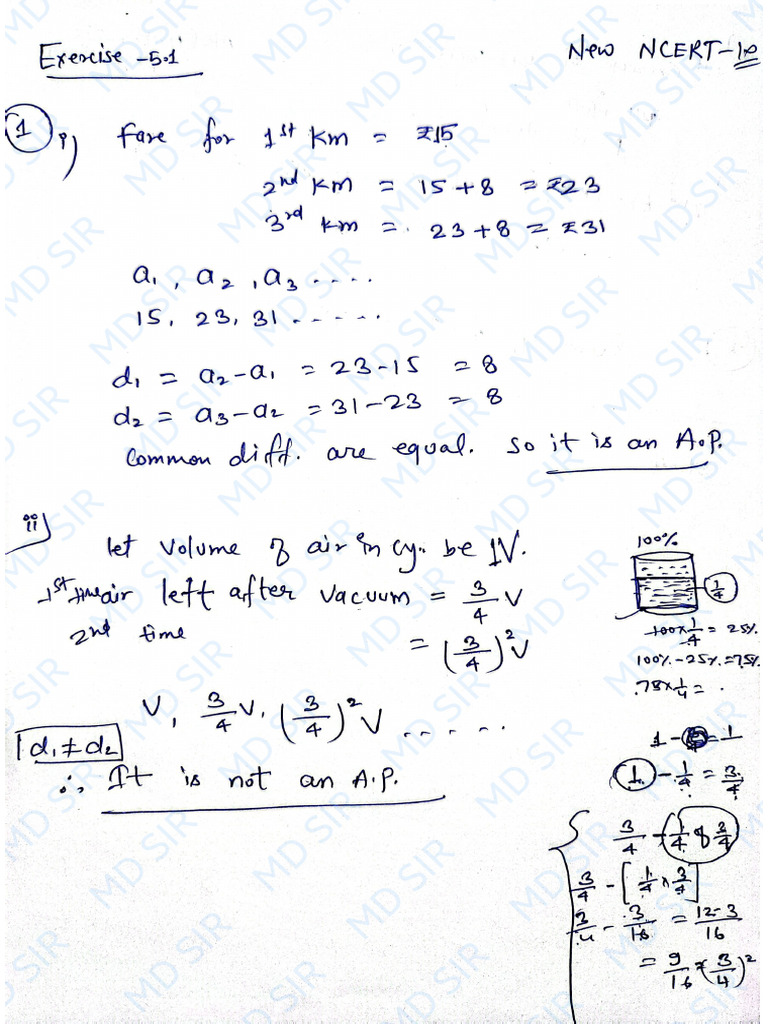 Exercise -5.1
New NCERT-10
1 i) Fare for 1st Km = ₹15
2nd Km = 15+8 = ₹23
3rd Km = 23+8 = ₹31
a1, a2, a3 ....
15, 23, 31 .....
d1 = a2-a1 = 23-15 = 8
d2 = a3-a2 = 31-23 = 8
Common diff. are equal. So it is an A.P.
ii)
let volume of air in cy. be 1V.
1st time air left after vacuum = 3/4 V
2nd time = (3/4)²V
V, 3/4 V, (3/4)²V .....
d1≠d2
∴ It is not an A.P.
100%
1/4
100×1/4 = 25%
100%-25%=75%
75×1/4 = .
1 - = 1
1 - 1/4 = 3/4
3/4 - 1/4 of 3/4
3/4 - [1/4 × 3/4]
3/4 - 3/16 = 12-3/16
= 9/16 = (3/4)²
MD SIR